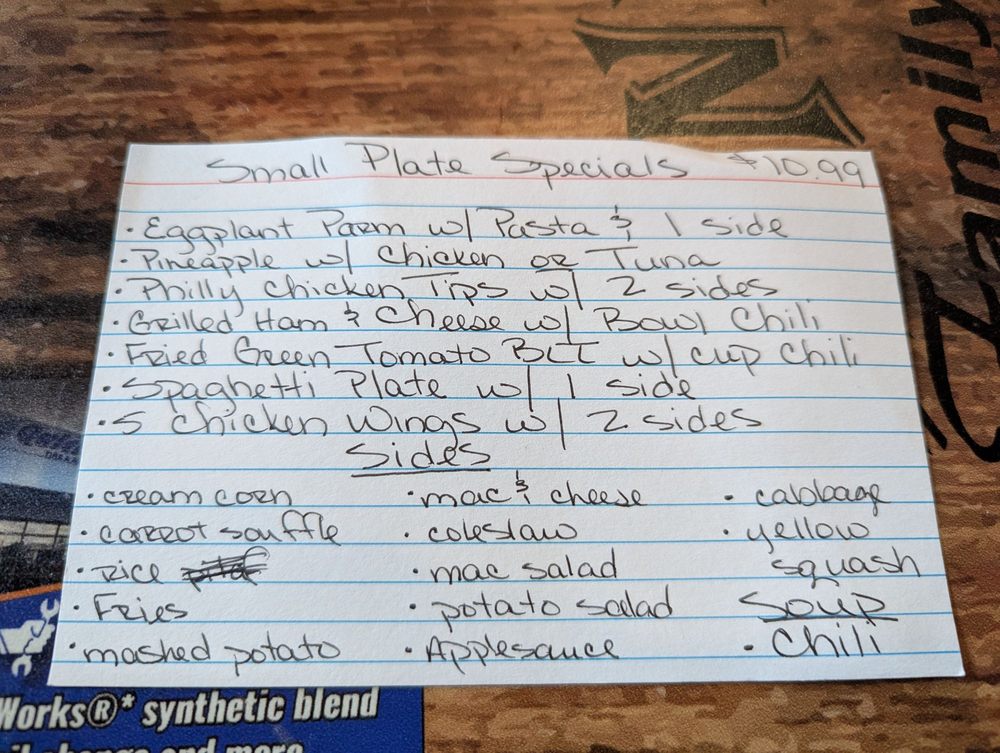 N
Family
Small Plate Specials $10.99
• Eggplant Parm w/ Pasta & 1 side
• Pineapple w/ Chicken or Tuna
• Philly Chicken Tips w/ 2 sides
• Grilled Ham & Cheese w/ Bowl Chili
• Fried Green Tomato BLT w/ cup Chili
• Spaghetti Plate w/ 1 side
• 5 Chicken Wings w/ 2 sides
Sides
• cream corn • mac & cheese • cabbage
• carrot souffle • coleslaw • yellow
• rice • mac salad squash
• Fries • potato salad Soup
• mashed potato • Applesauce • Chili
Works®* synthetic blend
oil change and more